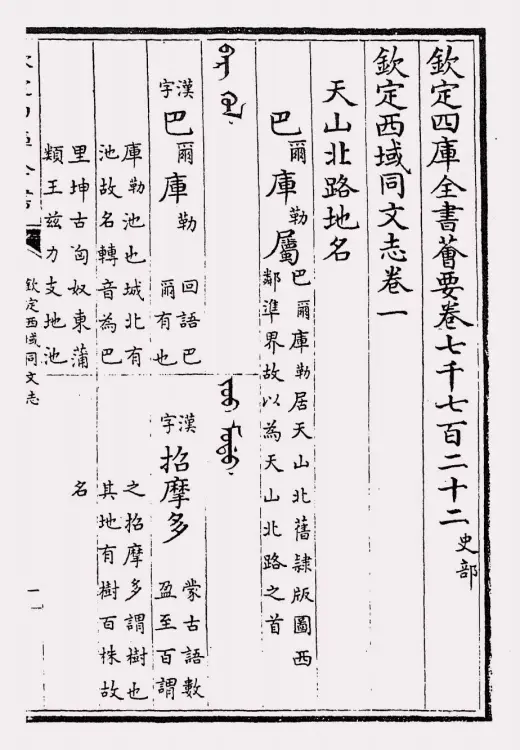 欽定四庫全書薈要卷七千七百二十二 史部
欽定西域同文志卷一
天山北路地名
巴爾庫勒屬
巴爾庫勒居天山北舊隸版圖西
鄰準界故以為天山北路之首
漢字 巴爾庫勒
回語巴
爾有也
庫勒池也城北有
池故名轉音為巴
里坤古匈奴東蒲
類王茲力支地池
漢字 招摩多
蒙古語數
盈至百謂
之招摩多謂樹也
其地有樹百株故
名
欽定西域同文志
一